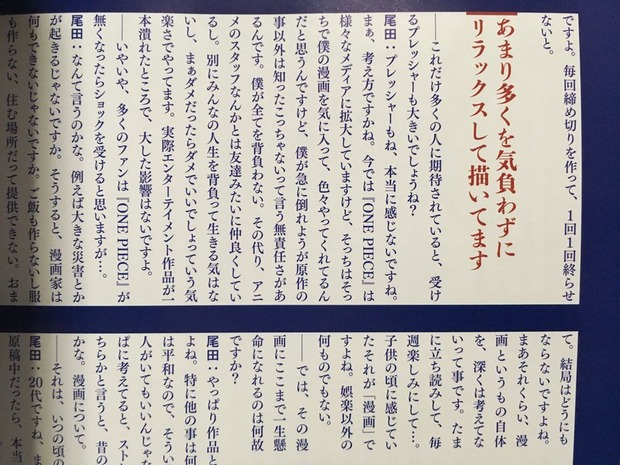 ですよ。毎回締め切りを作って、1回1回終らせ
ないと。
あまり多くを気負わずに
リラックスして描いてます
――これだけ多くの人に期待されていると、受け
るプレッシャーも大きいでしょうね?
尾田:プレッシャーもね、本当に感じないですね。
まぁ、考え方ですかね。今では『ONE PIECE』は
様々なメディアに拡大していますけど、そっちはそっ
ちで僕の漫画を気に入って、色々やってくれてるん
だと思うんですけど、僕が急に倒れようが原作の
事以外は知ったこっちゃないって言う無責任さがあ
るんです。僕が全てを背負わない。その代り、アニ
メのスタッフなんかとは友達みたいに仲良くしてい
るし。別にみんなの人生を背負って生きる気はな
いし、まぁダメだったらダメでいいでしょっていう気
楽さでやってます。実際エンターテイメント作品が一
本潰れたところで、大した影響はないですよ。
――いやいや、多くのファンは『ONE PIECE』が
無くなったらショックを受けると思いますが…。
尾田:なんて言うのかな。例えば大きな災害とか
が起きるじゃないですか。そうすると、漫画家は
何もできないじゃないですか。ご飯も作らないし服
も作らない、住む場所だって提供できない。おま
て。結局はどうにも
ならないですよね。
まあそれくらい、漫
画というもの自体
を、深くは考えてな
いって事です。たま
に立ち読みして、毎
週楽しみにして…。
子供の頃に感じてい
たそれが「漫画」で
すよね。娯楽以外の
何ものでもない。
――では、その漫
画にここまで一生懸
命になれるのは何故
ですか?
尾田:やっぱり作品と
よね。特に他の事は何
は平和なので、そうい
人がいてもいいんじゃな
ぱに考えてると、スト
ちらかと言うと、昔の
かな。漫画について。
――それは、いつの頃
尾田:20代ですね、ま
原稿中だったら、本当